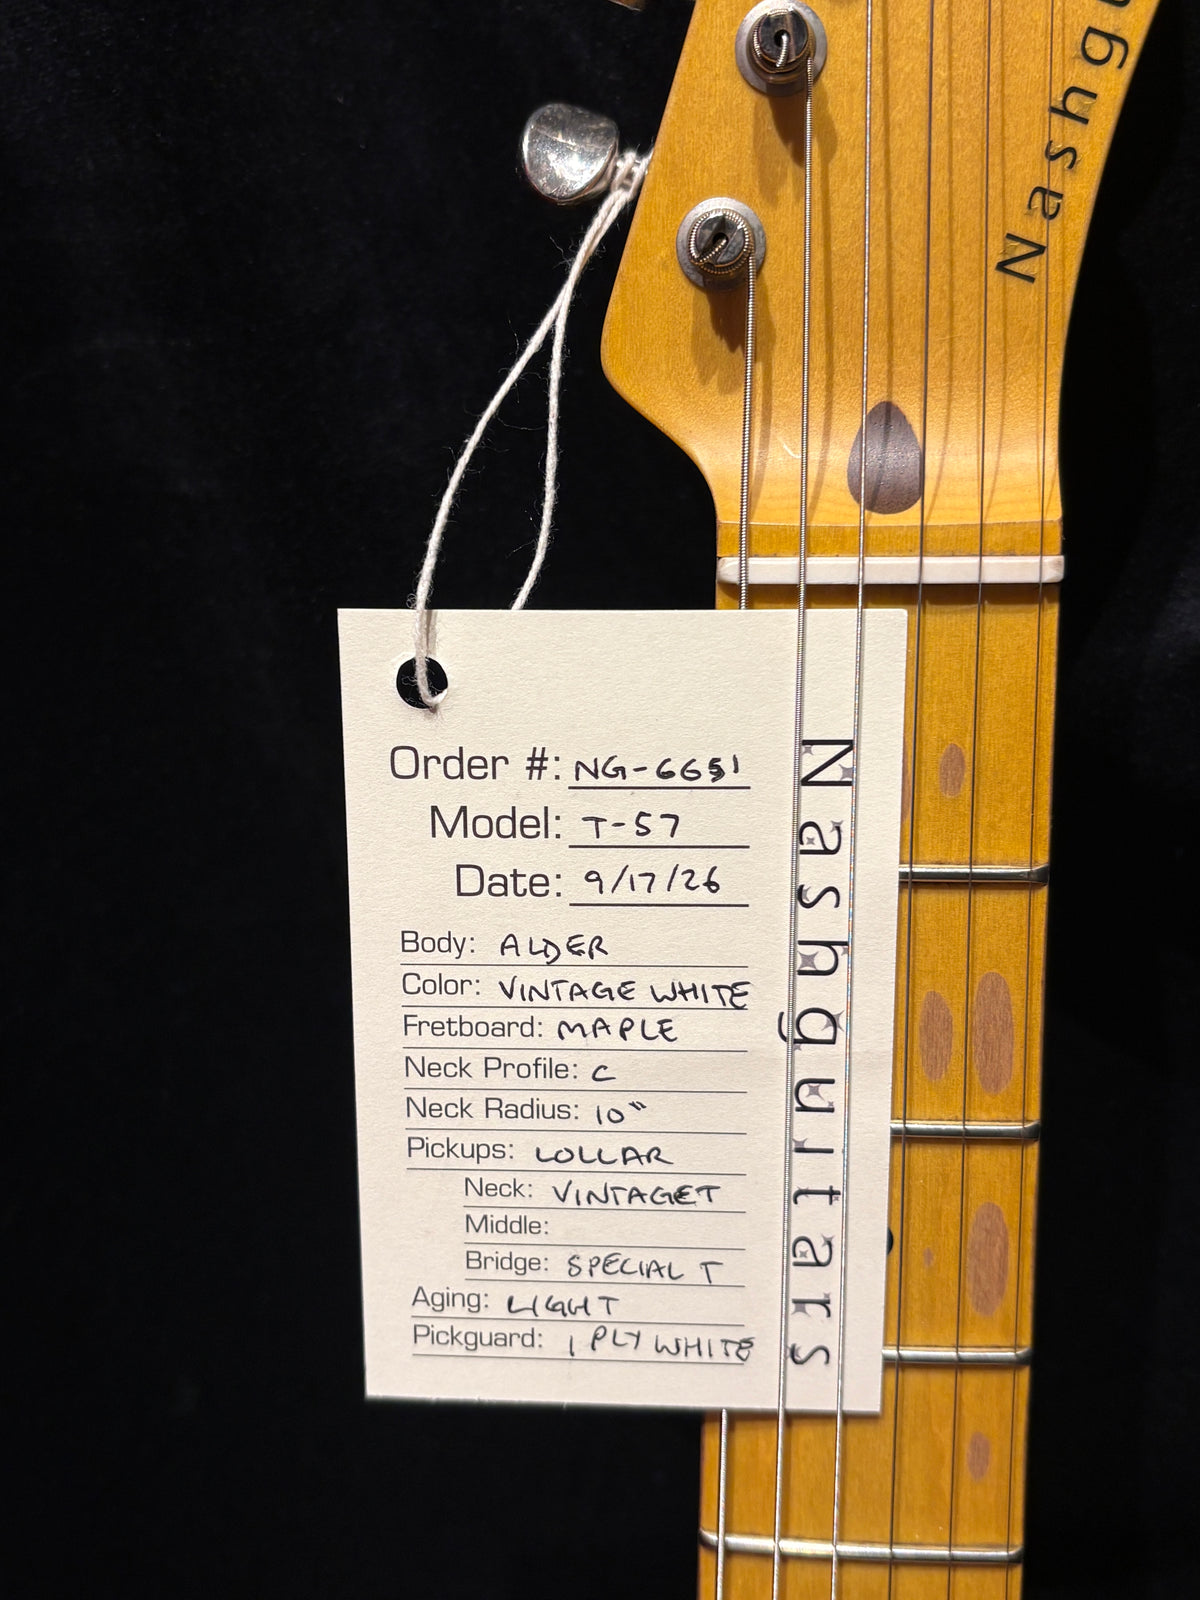 Nashgu
Order #: NG-6651
Model: T-57
Date: 9/17/26
Body: ALDER
Color: VINTAGE WHITE
Fretboard: MAPLE
Neck Profile: C
Neck Radius: 10"
Pickups: LOLLAR
Neck: VINTAGE T
Middle:
Bridge: SPECIAL T
Aging: LIGHT
Pickguard: 1 PLY WHITE
Nashguitars